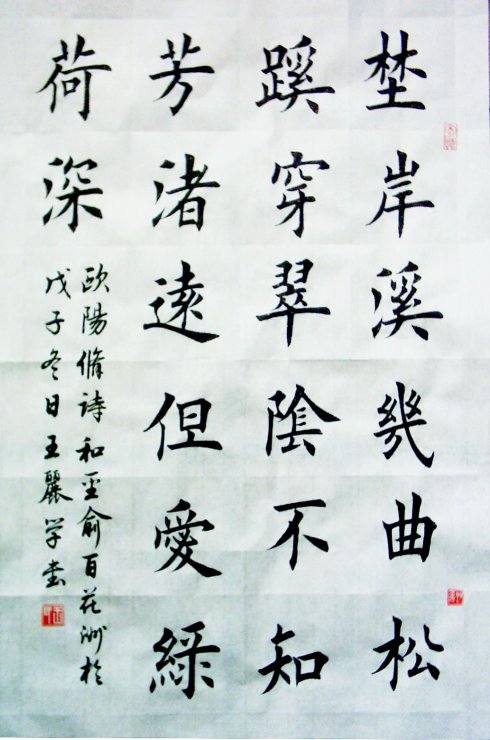 埜岸溪幾曲松
蹊穿翠陰不知
芳渚遠但愛綠
荷深
歐陽脩詩和圣俞百花洲於
戊子冬日王麗学書